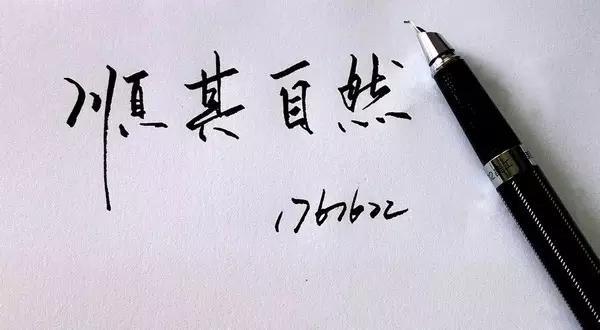 顺其自然
1767622